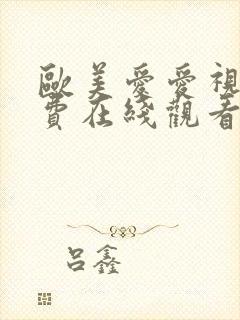 歐美愛愛視
費在綫觀看
呂鑫